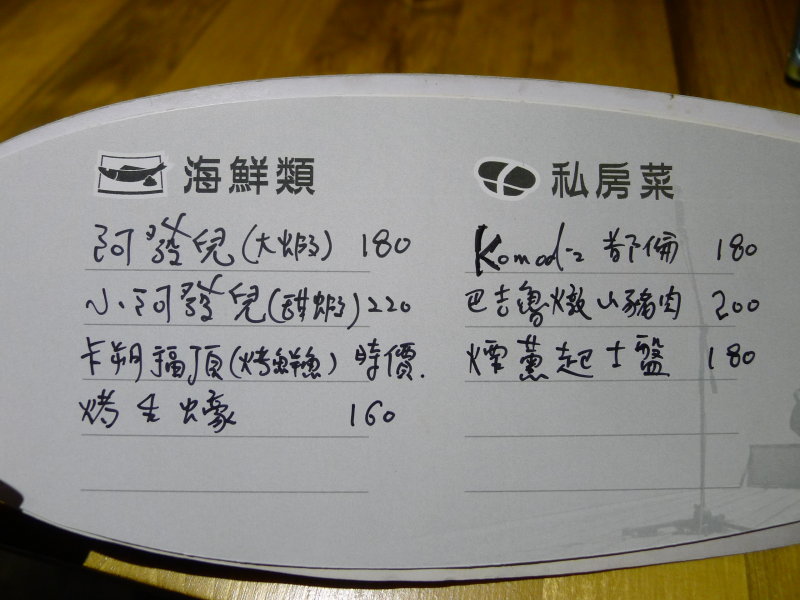 海鮮類
阿發兒(大蝦) 180
小阿發兒(甜蝦) 220
卡朔福頂(烤鮮魚) 時價.
烤生蠔 160
私房菜
Komod-2 都倫 180
巴吉魯燉山豬肉 200
煙薰起士盤 180